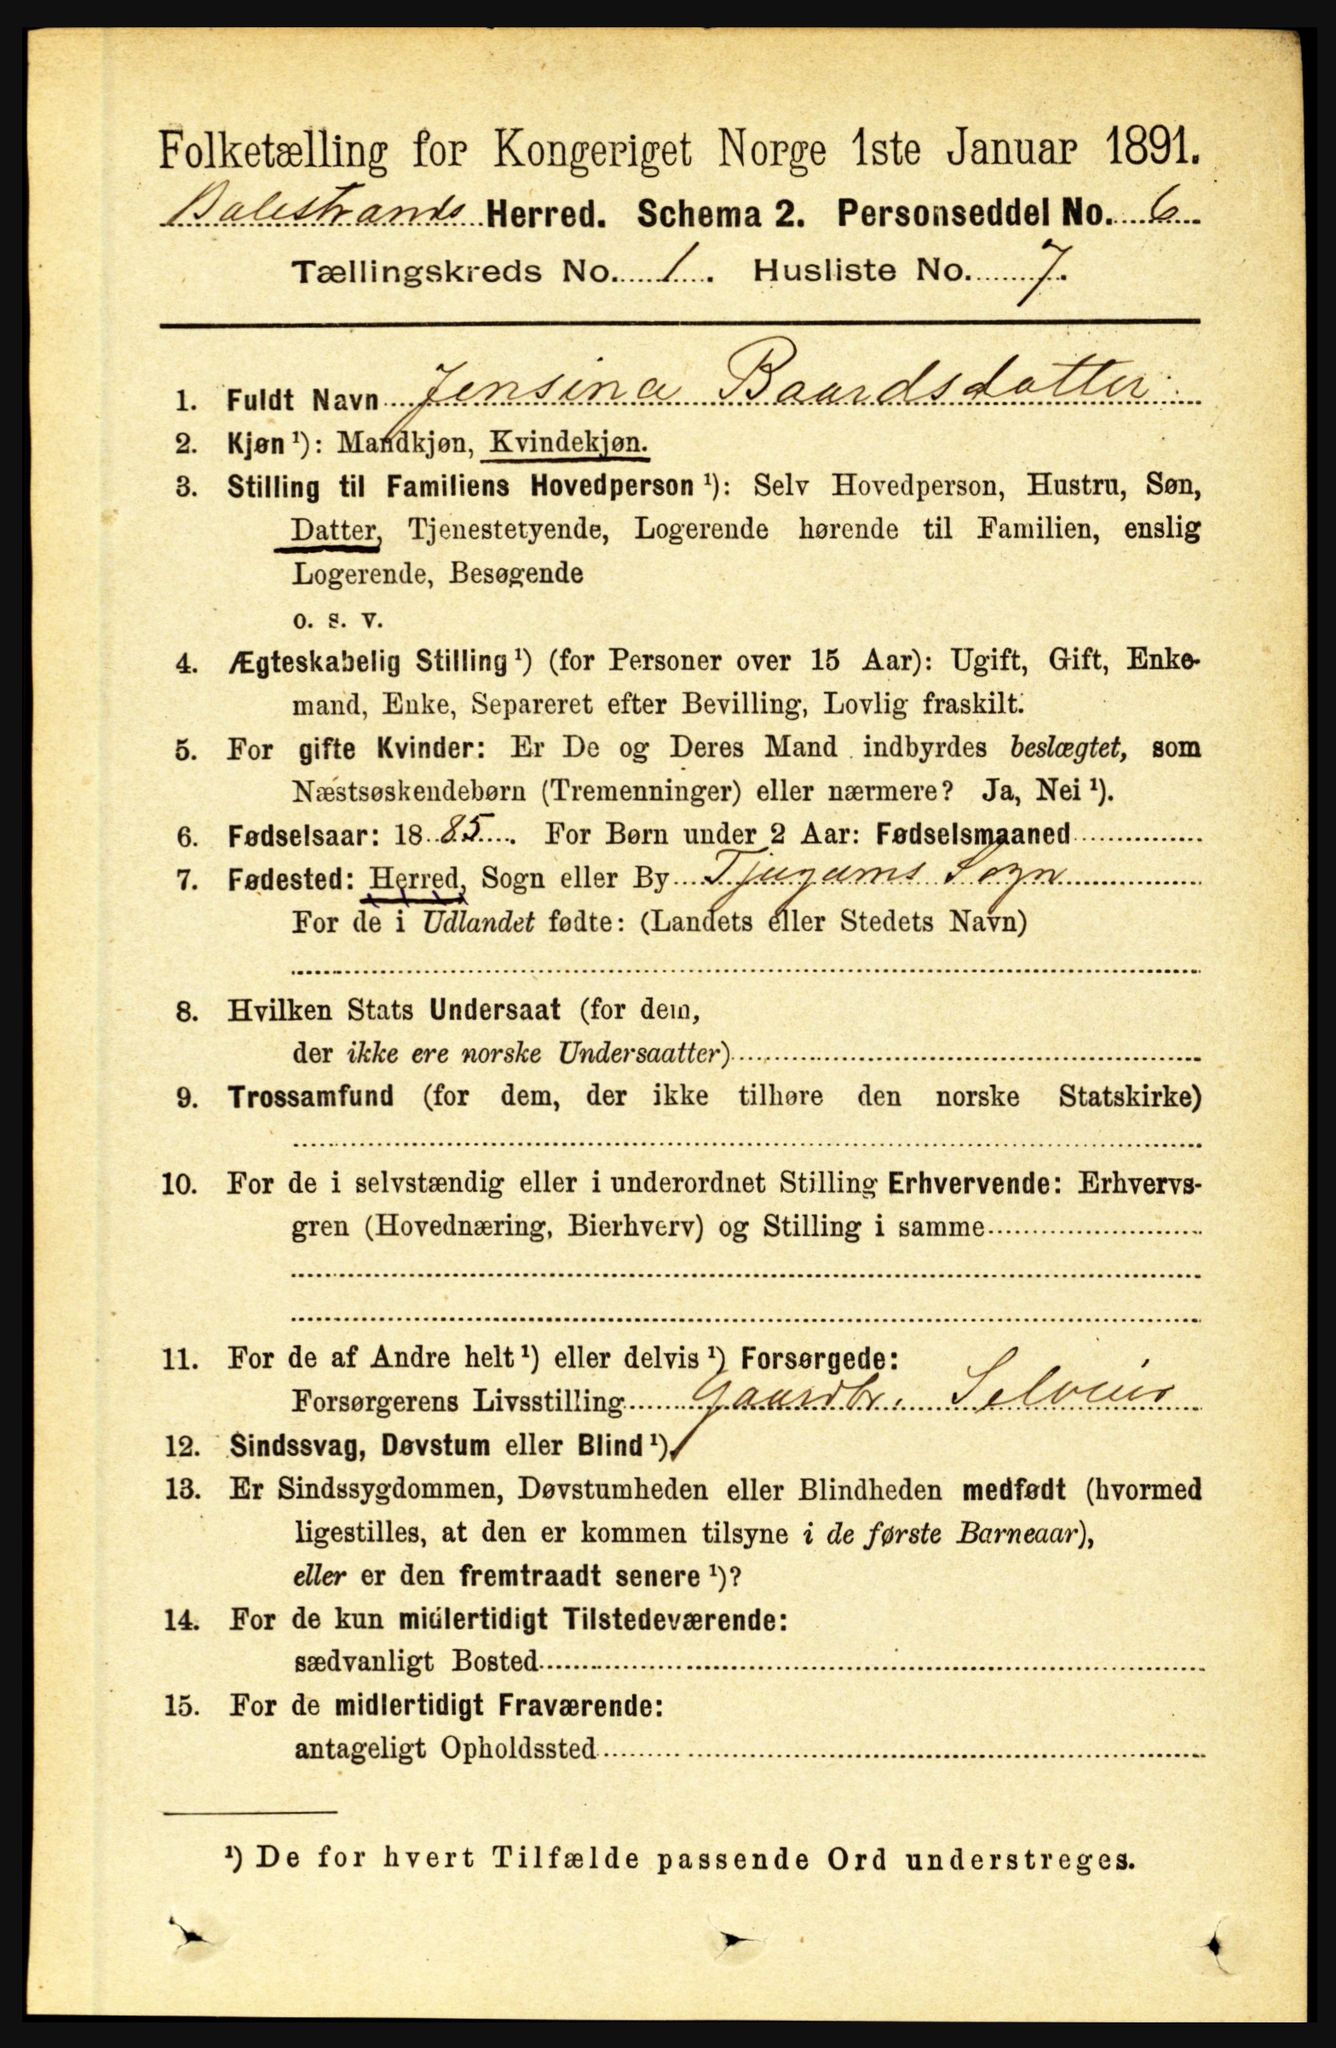 Folketælling for Kongeriget Norge 1ste Januar 1891.
Balestrands Herred. Schema 2. Personseddel No. 6
Tællingskreds No. 1. Husliste No. 7.
1. Fuldt Navn Jensina Baardsdatter
2. Kjøn¹): Mandkjøn, Kvindekjøn.
3. Stilling til Familiens Hovedperson¹): Selv Hovedperson, Hustru, Søn,
Datter, Tjenestetyende, Logerende hørende til Familien, enslig
Logerende, Besøgende
o. s. v.
4. Ægteskabelig Stilling¹) (for Personer over 15 Aar): Ugift, Gift, Enke-
mand, Enke, Separeret efter Bevilling, Lovlig fraskilt.
5. For gifte Kvinder: Er De og Deres Mand indbyrdes beslægtet, som
Næstsøskendebørn (Tremenninger) eller nærmere? Ja, Nei¹).
6. Fødselsaar: 1885. For Børn under 2 Aar: Fødselsmaaned
7. Fødested: Herred, Sogn eller By Tjugums Sogn
For de i Udlandet fødte: (Landets eller Stedets Navn)
8. Hvilken Stats Undersaat (for dem,
der ikke ere norske Undersaatter)
9. Trossamfund (for dem, der ikke tilhøre den norske Statskirke)
10. For de i selvstændig eller i underordnet Stilling Erhvervende: Erhvervs-
gren (Hovednæring, Bierhverv) og Stilling i samme
11. For de af Andre helt¹) eller delvis¹) Forsørgede:
Forsørgerens Livsstilling Gaardbr. Selveier
12. Sindssvag, Døvstum eller Blind¹).
13. Er Sindssygdommen, Døvstumheden eller Blindheden medfødt (hvormed
ligestilles, at den er kommen tilsyne i de første Barneaar),
eller er den fremtraadt senere¹)?
14. For de kun midlertidigt Tilstedeværende:
sædvanligt Bosted
15. For de midlertidigt Fraværende:
antageligt Opholdssted
¹) De for hvert Tilfælde passende Ord understreges.